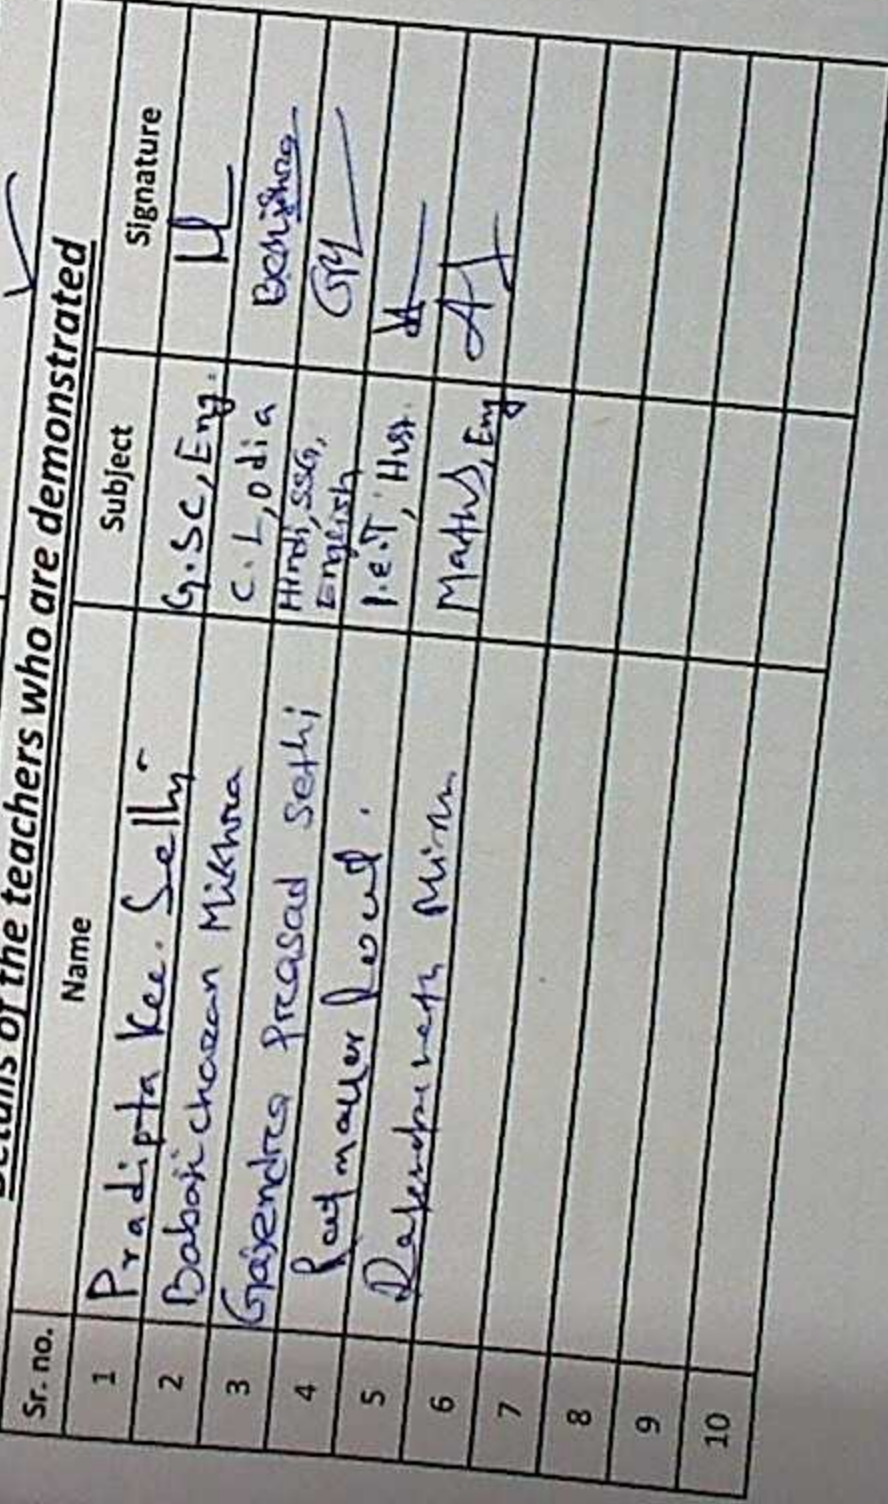 Details of the teachers who are demonstrated
Sr. no. Name Subject Signature
1 Pradipta Kr. Sethi G.SC, Eng.
2 Babaji charan Mishra C.L, odia
3 Gajendra Prasad Sethi Hindi, SSG, English
4 Rout I.C.T, Hist.
5 Maths, Eng
6
7
8
9
10